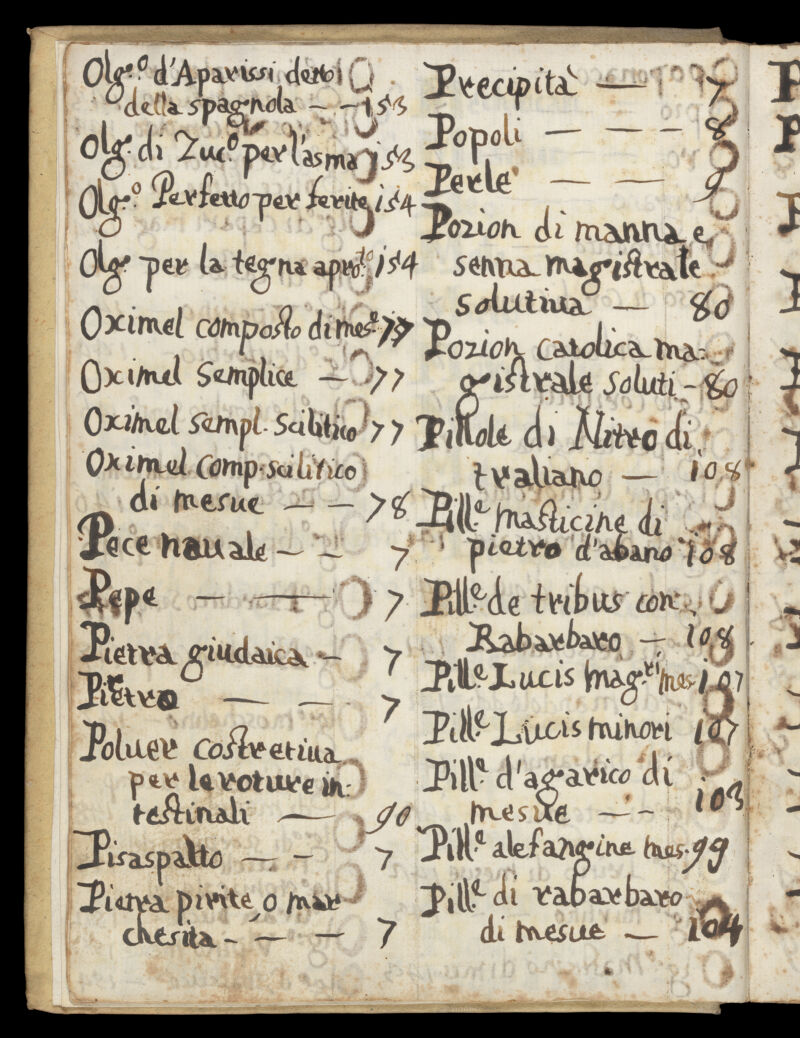 Olg.º d'Aparissi detto
della spagnola — — 153
Olg.º di Zuc.º per l'asma 153
Olg.º Perfetto per ferite 154
Olg.º per la tegna apro.to 154
Oximel composto di mes.e 77
Oximel Semplice — 77
Oximel sempl. Scilitico 77
Oximel Comp. scilitico
di mesue — — 78
Pece nauale — — 7
Pepe — — 7
Pietra giudaica — 7
Piretro — — 7
Poluer costretiua
per le roture in-
testinali — 90
Pisaspalto — — 7
Pietra pirite, o mar
chesita - — — 7
Precipità — 7
Popoli — — — 8
Perle — — 9
Pozion di manna e
senna magistrale
solutiua — 80
Pozion catolica ma=
gistrale soluti - 80
Pillole di Nitro di
traliano — 108
Pill.e masticine di
pietro d'abano 108
Pill.e de tribus con
Rabarbaro — 108
Pill.e Lucis mag.ri mes. 107
Pill.e Lucis minori 107
Pill.e d'agarico di
mesue — - 103
Pill.e alefangine mes. 99
Pill.e di rabarbaro
di mesue — 104